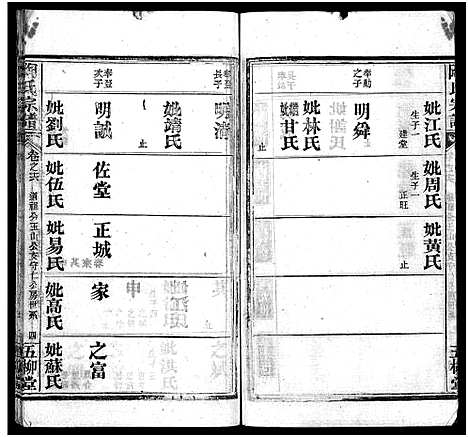 妣江氏 妣周氏 妣黃氏
生子一 建堂 生子一 正旺 止
奉勳之子 明舜
妣林氏
妣甘氏 止
長子 明清
妣靖氏 止
奉登次子 明誠 佐堂 正城 家 之富
妣劉氏 妣伍氏 妣易氏 妣高氏 妣蘇氏
氏宗譜 卷之六 四 五柳堂